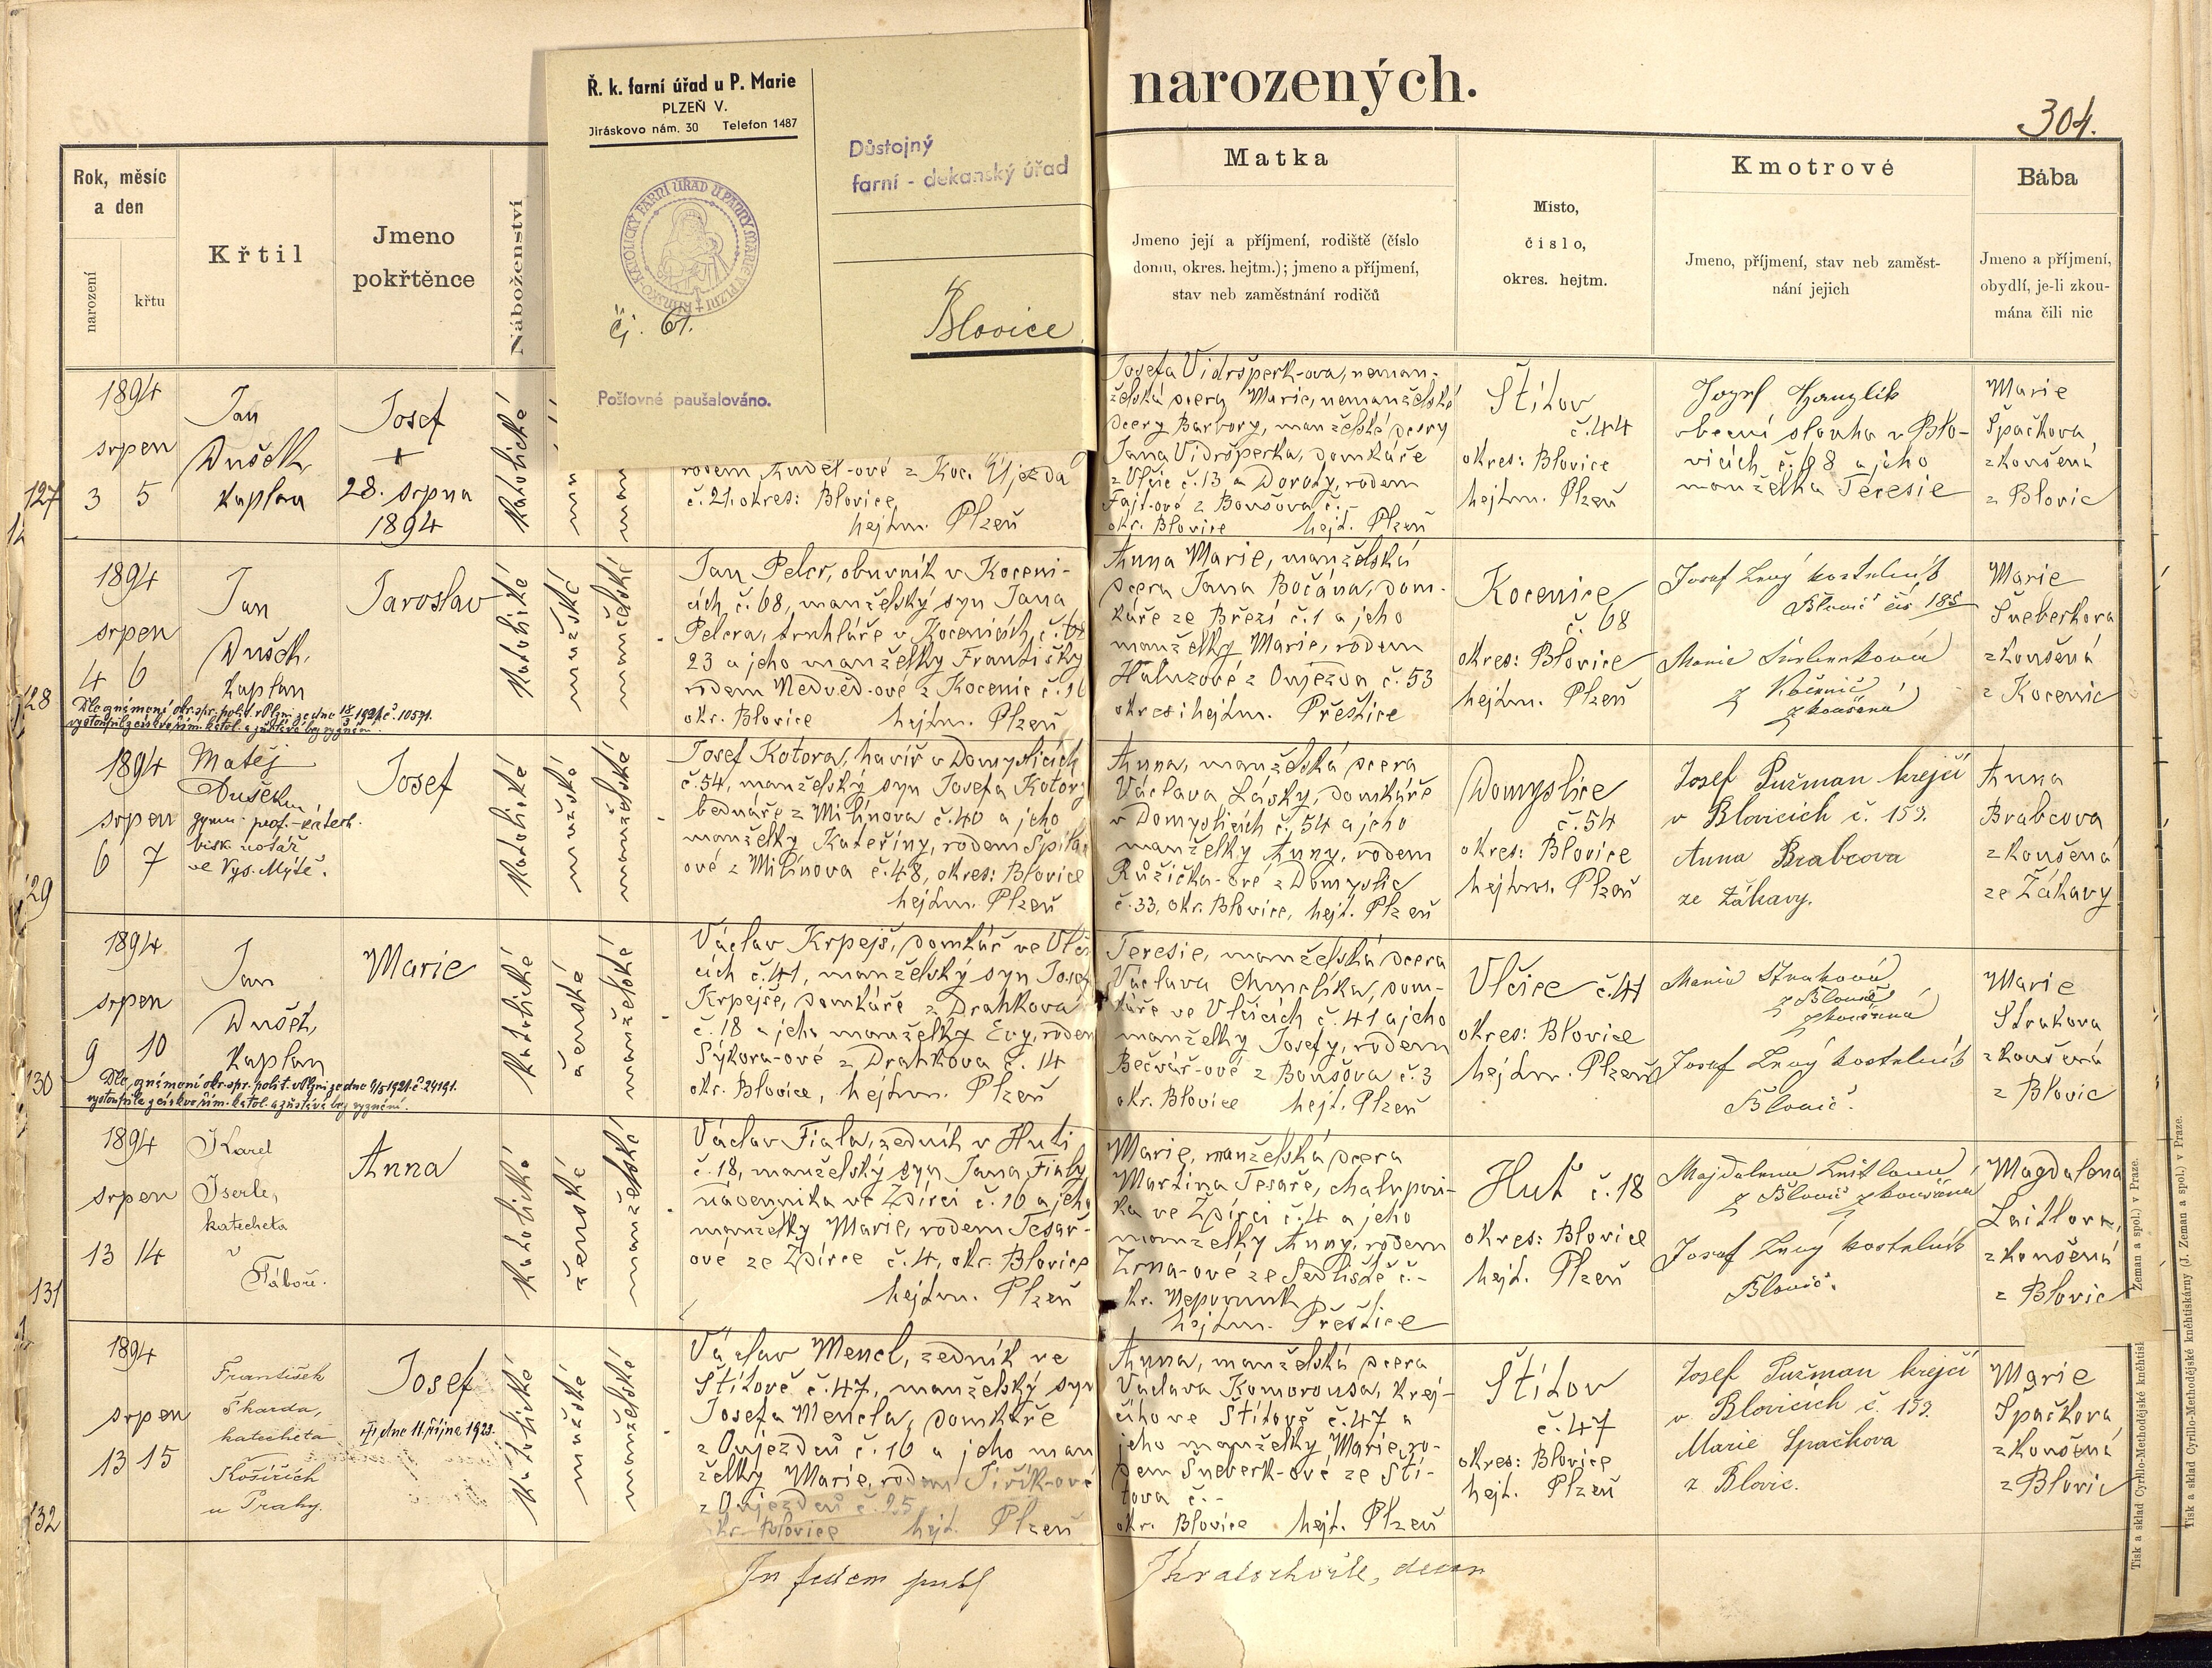 narozených.
304.
Ř. k. farní úřad u P. Marie
PLZEŇ V.
Jiráskovo nám. 30 Telefon 1487
ŘÍMSKO-KATOLICKÝ FARNÍ ÚŘAD U PANNY MARIE V PLZNI
čj. 61.
Poštovné paušalováno.
Důstojný
farní - dekanský úřad
Blovice
Rok, měsíc
a den
narození
křtu
Křtil
Jmeno
pokřtěnce
Náboženství
Matka
Jmeno její a příjmení, rodiště (číslo
domu, okres. hejtm.); jmeno a příjmení,
stav neb zaměstnání rodičů
Místo,
číslo,
okres. hejtm.
Kmotrové
Jmeno, příjmení, stav neb zaměst-
nání jejich
Bába
Jmeno a příjmení,
obydlí, je-li zkou-
mána čili nic
127
1894
srpen
3 5
Jan
Dušek,
kaplan
Josef
+
28. srpna
1894
katolické
rodem Kudel-ové z Koc. Újezda
č. 21. okres: Blovice,
hejtm. Plzeň
Josefa Vidršperk-ova, neman-
želská dcera Marie, nemanželské
dcery Barbory, manželské dcery
Jana Vidršperka, domkáře
z Vlčic č. 13 a Doroty, rodem
Fajt-ové z Boušova č. -
okr. Blovice hejt. Plzeň
Štítov
č. 44
okres: Blovice
hejtm. Plzeň
Josef Hanzlík
obecní sluha v Blo-
vicích č. 98 a jeho
manželka Teresie
Marie
Špačkova,
zkoušená
z Blovic
128
1894
srpen
4 6
Jan
Dušek,
kaplan
Jaroslav
katolické
mužské
manželské
Dle oznámení okr. spr. polit. v Plzni ze dne 18/3 1921 č. 10571.
vystoupil z církve řím. katol. a zůstává bez vyznání.
Jan Pelcr, obuvník v Koceni-
cích č. 68, manželský syn Jana
Pelcra, truhláře v Kocenicích č. 68
23 a jeho manželky Františky
rodem Medvěd-ové z Kocenic č. 16
okr. Blovice hejtm. Plzeň
Anna Marie, manželská
dcera Jana Bočána, dom-
káře ze Březí č. 1 a jeho
manželky Marie, rodem
Haluzové z Oujezda č. 53
okres i hejtm. Přeštice
Kocenice
č. 68
okres: Blovice
hejtm. Plzeň
Josef Levý kostelník
Blovic čís 185
Marie
z Kocenic
zkoušená
Marie
Šneberkova
zkoušená
z Kocenic
129
1894
srpen
6 7
Matěj
Dušek
gymn. prof. - katech.
bisk. notář
ve Vys. Mýtě.
Josef
katolické
mužské
manželské
Josef Kotora, havíř v Domyslicích
č. 54, manželský syn Josefa Kotory
bednáře z Milínova č. 40 a jeho
manželky Kateřiny, rodem Špila-
ové z Milínova č. 48, okres: Blovice
hejtm. Plzeň
Anna, manželská dcera
Václava Lásky, domkáře
v Domyslicích č. 54 a jeho
manželky Anny, rodem
Růžička-ové z Domyslic
č. 33, okr. Blovice, hejt. Plzeň
Domyslice
č. 54
okres: Blovice
hejtm. Plzeň
Josef Pužman krejčí
v Blovicích č. 159.
Anna Brabcova
ze Žákavy.
Anna
Brabcova
zkoušená
ze Žákavy
130
1894
srpen
9 10
Jan
Dušek,
kaplan
Marie
katolické
ženské
manželské
Dle oznámení okr. spr. polit. v Plzni ze dne 9/5 1921 č. 24191.
vystoupila z církve řím. katol. a zůstává bez vyznání.
Václav Krpejš, domkář ve Vlči-
cích č. 41, manželský syn Josefa
Krpejše, domkáře z Drahkova
č. 18 a jeho manželky Evy, rodem
Sýkora-ové z Drahkova č. 14
okr. Blovice, hejtm. Plzeň
Teresie, manželská dcera
Václava Chmelíka, dom-
káře ve Vlčicích č. 41 a jeho
manželky Josefy, rodem
Bečvář-ové z Boušova č. 3
okr. Blovice hejt. Plzeň
Vlčice č. 41
okres: Blovice
hejtm. Plzeň
Marie Straková
z Blovic
zkoušená
Josef Levý kostelník
Blovic.
Marie
Strakova
zkoušená
z Blovic
131
1894
srpen
13 14
Karel
Iserle,
katecheta
v
Táboře.
Anna
katolické
ženské
manželské
Václav Fiala, zedník v Huti
č. 18, manželský syn Jana Fialy
nádenníka ve Ždírci č. 10 a jeho
manželky Marie, rodem Tesař-
ové ze Ždírce č. 4, okr. Blovice
hejtm. Plzeň
Marie, manželská dcera
Martina Tesaře, chalupní-
ka ve Ždírci č. 4 a jeho
manželky Anny, rodem
Zrna-ové ze Sedliště č. -
kr. Nepomuk
hejtm. Přeštice
Huť č. 18
okres: Blovice
hejt. Plzeň
Majdalena Leitlova
z Blovic zkoušená
Josef Levý kostelník
Blovic.
Magdalena
Leitlova,
zkoušená
z Blovic
132
1894
srpen
13 15
František
Škarda,
katecheta
v Košířích
u Prahy.
Josef
dne 11. října 1923.
katolické
mužské
manželské
Václav Mencl, zedník ve
Štítově č. 47, manželský syn
Josefa Mencla, domkáře
z Oujezdů č. 16 a jeho man
želky Marie, rodem Jiřík-ové
z Oujezdů č. 25
okr. Blovice hejt. Plzeň
Anna, manželská dcera
Václava Komorousa, krej-
čího ve Štítově č. 47 a
jeho manželky Marie, ro-
dem Šneberk-ové ze Ští-
tova č. -
okr. Blovice hejt. Plzeň
Štítov
č. 47
okres: Blovice
hejt. Plzeň
Josef Pužman krejčí
v Blovicích č. 159.
Marie Spačkova
z Blovic.
Marie
Špačkova,
zkoušená
z Blovic
In fidem publ
děkan
Tisk a sklad Cyrillo-Methodějské kněhtisk
Zeman a spol.) v Praze.
Tisk a sklad Cyrillo-Methodějské kněhtiskárny (J. Zeman a spol.) v Praze.